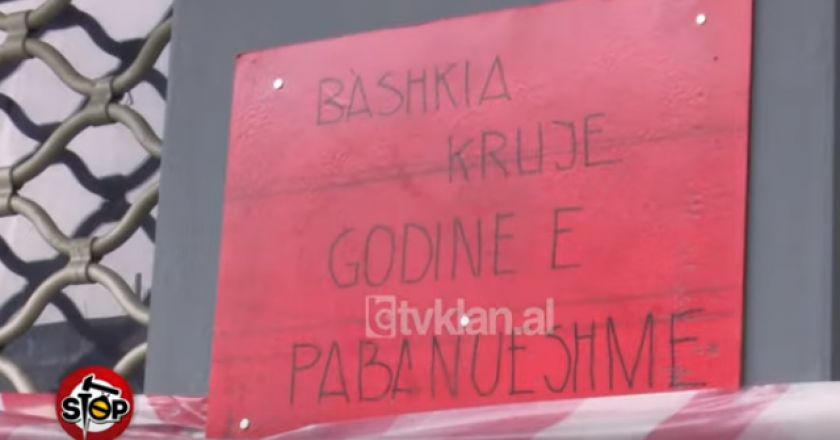 BASHKIA
KRUJE
GODINE E
tvklan.al
PABANUESHME
STOP